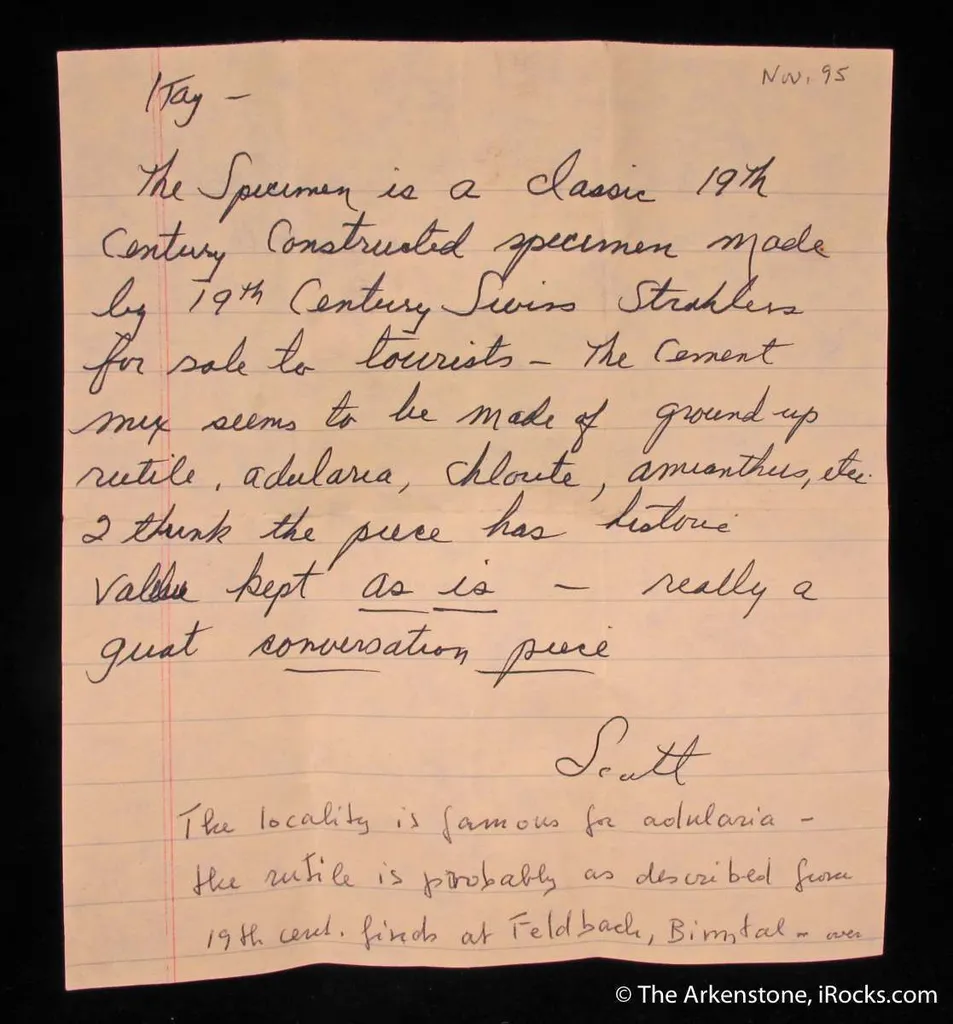 Nov. 95
Itay –
The Specimen is a classic 19th
Century Constructed specimen made
by 19th Century Swiss Strahlers
for sale to tourists – The Cement
mix seems to be made of ground up
rutile, adularia, chlorite, amianthus, etc.
I think the piece has historic
Value kept as is – really a
great conversation piece
Scott
The locality is famous for adularia –
the rutile is probably as described from
19th cent. finds at Feldbach, Binntal – over
© The Arkenstone, iRocks.com